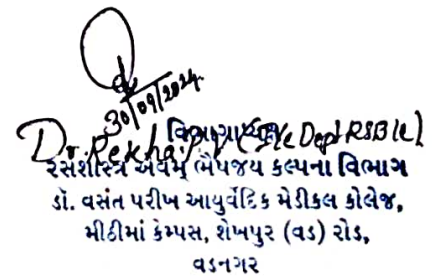 30/09/2024.
વિભાગાધ્યક્ષ
Dr. Rekha P. V (I/c Dept RSBK)
રસશાસ્ત્ર અવમ્ ભૈષજય કલ્પના વિભાગ
ડૉ. વસંત પરીખ આયુર્વેદિક મેડીકલ કોલેજ,
મીઠીમાં કેમ્પસ, શેખપુર (વડ) રોડ,
વડનગર